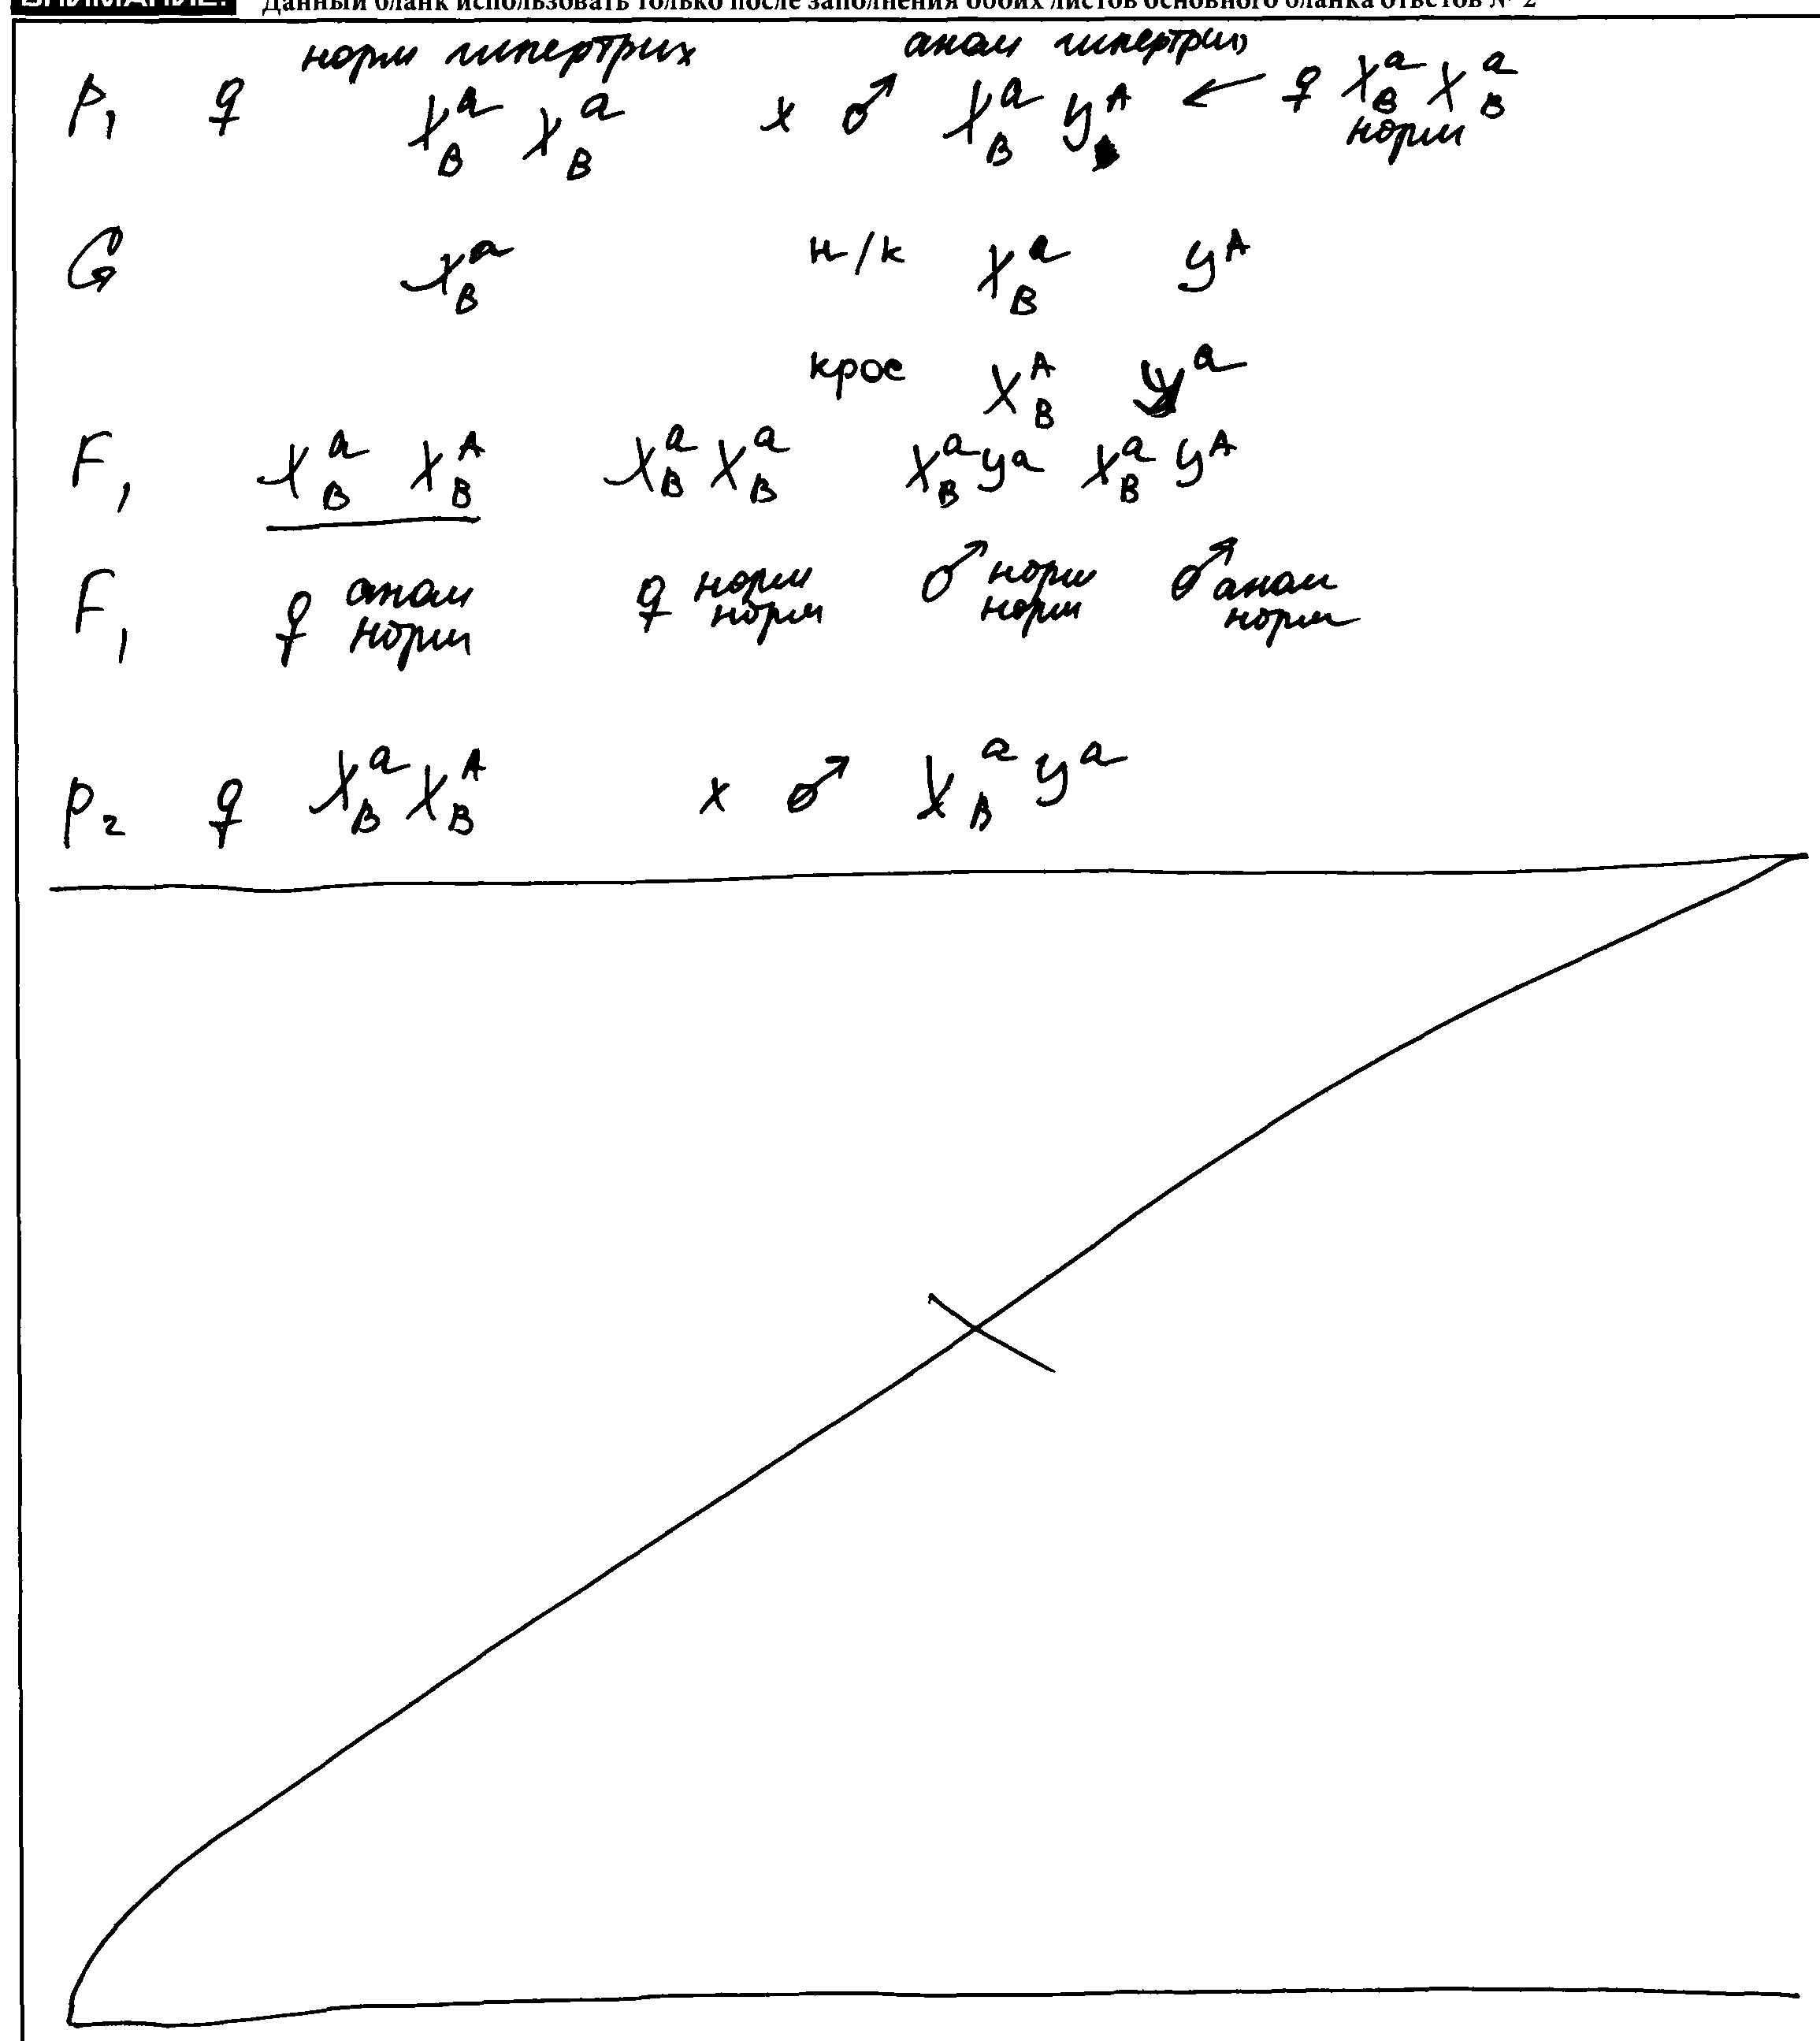 ВНИМАНИЕ! Данный бланк использовать только после заполнения обоих листов основного бланка ответов № 2
норм гипертрих аном гипертрих
P₁ ♀ Xᵃ_B Xᵃ_B x ♂ Xᵃ_B yᴬ ← ♀ Xᵃ_B Xᵃ_B
норм
G Xᵃ_B н/к Xᵃ_B yᴬ
крос Xᴬ_B yᵃ
F₁ Xᵃ_B Xᴬ_B Xᵃ_B Xᵃ_B Xᵃ_B yᵃ Xᵃ_B yᴬ
F₁ ♀ аном ♀ норм ♂ норм ♂ аном
норм норм норм норм
P₂ ♀ Xᵃ_B Xᴬ_B x ♂ Xᵃ_B yᵃ